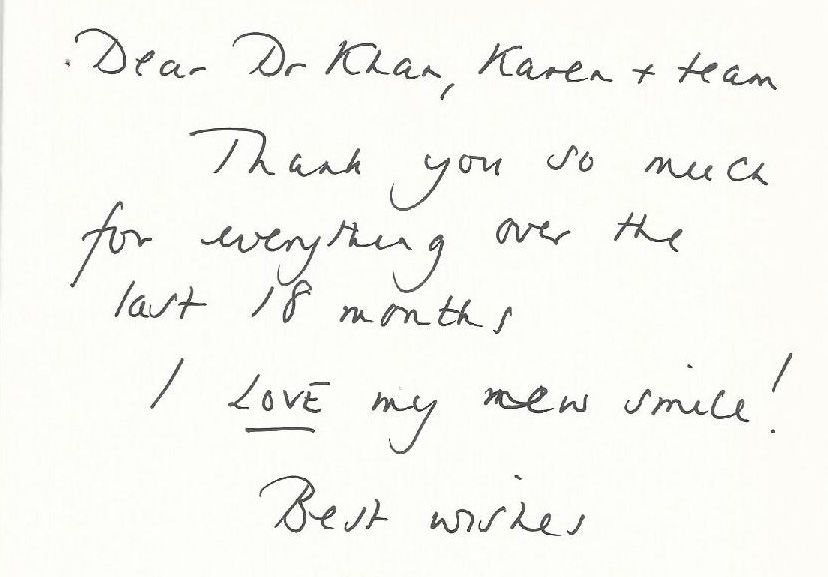 Dear Dr Khan, Karen + team
Thank you so much
for everything over the
last 18 months
I LOVE my new smile!
Best wishes